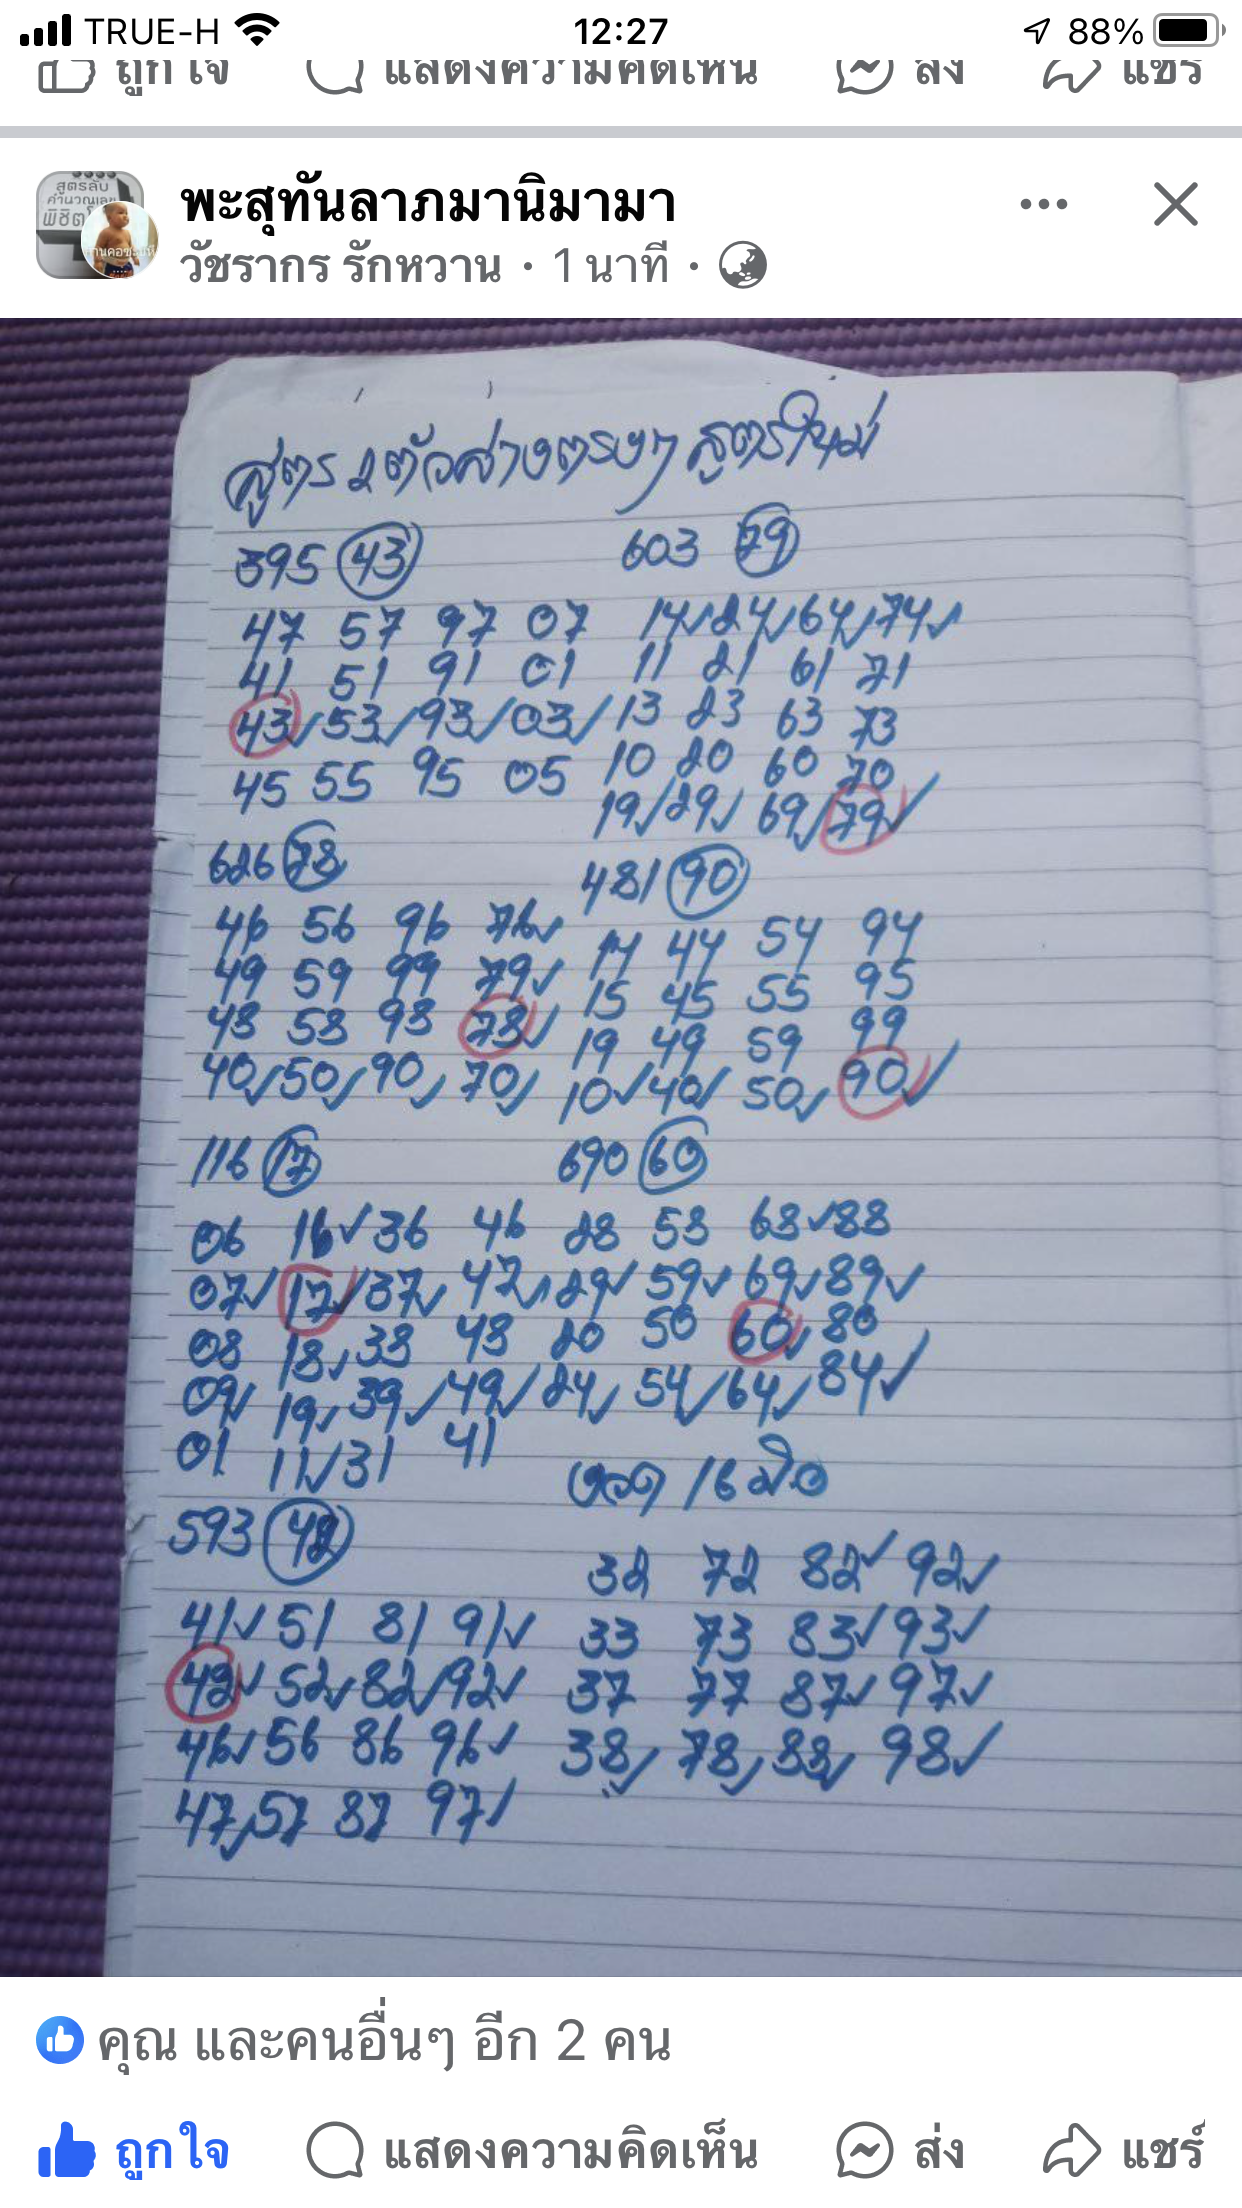 TRUE-H 12:27 88%
ถูกใจ แสดงความคิดเห็น ส่ง แชร์
สูตรลับ
คำนวณเลข
พะสุทันลาภมานิมามา
วัชรากร รักหวาน · 1 นาที ·
สูตร 2 ตัวล่างตรงๆ สูตรใหม่
395 43 603 79
47 57 97 07 14 24 64 74
41 51 91 01 11 21 61 71
43 53 93 03 13 23 63 73
45 55 95 05 10 20 60 70
19 29 69 79
626 78 481 90
46 56 96 76 14 44 54 94
49 59 99 79 15 45 55 95
48 58 98 78 19 49 59 99
40 50 90 70 10 40 50 90
116 17 690 60
06 16 36 46 28 58 68 88
07 17 37 47 29 59 69 89
08 18 38 48 20 50 60 80
09 19 39 49 24 54 64 84
01 11 31 41
งวด 16 มิอ
593 42
32 72 82 92
41 51 81 91 33 73 83 93
42 52 82 92 37 77 87 97
46 56 86 96 38 78 88 98
47 57 87 97
คุณ และคนอื่นๆ อีก 2 คน
ถูกใจ แสดงความคิดเห็น ส่ง แชร์